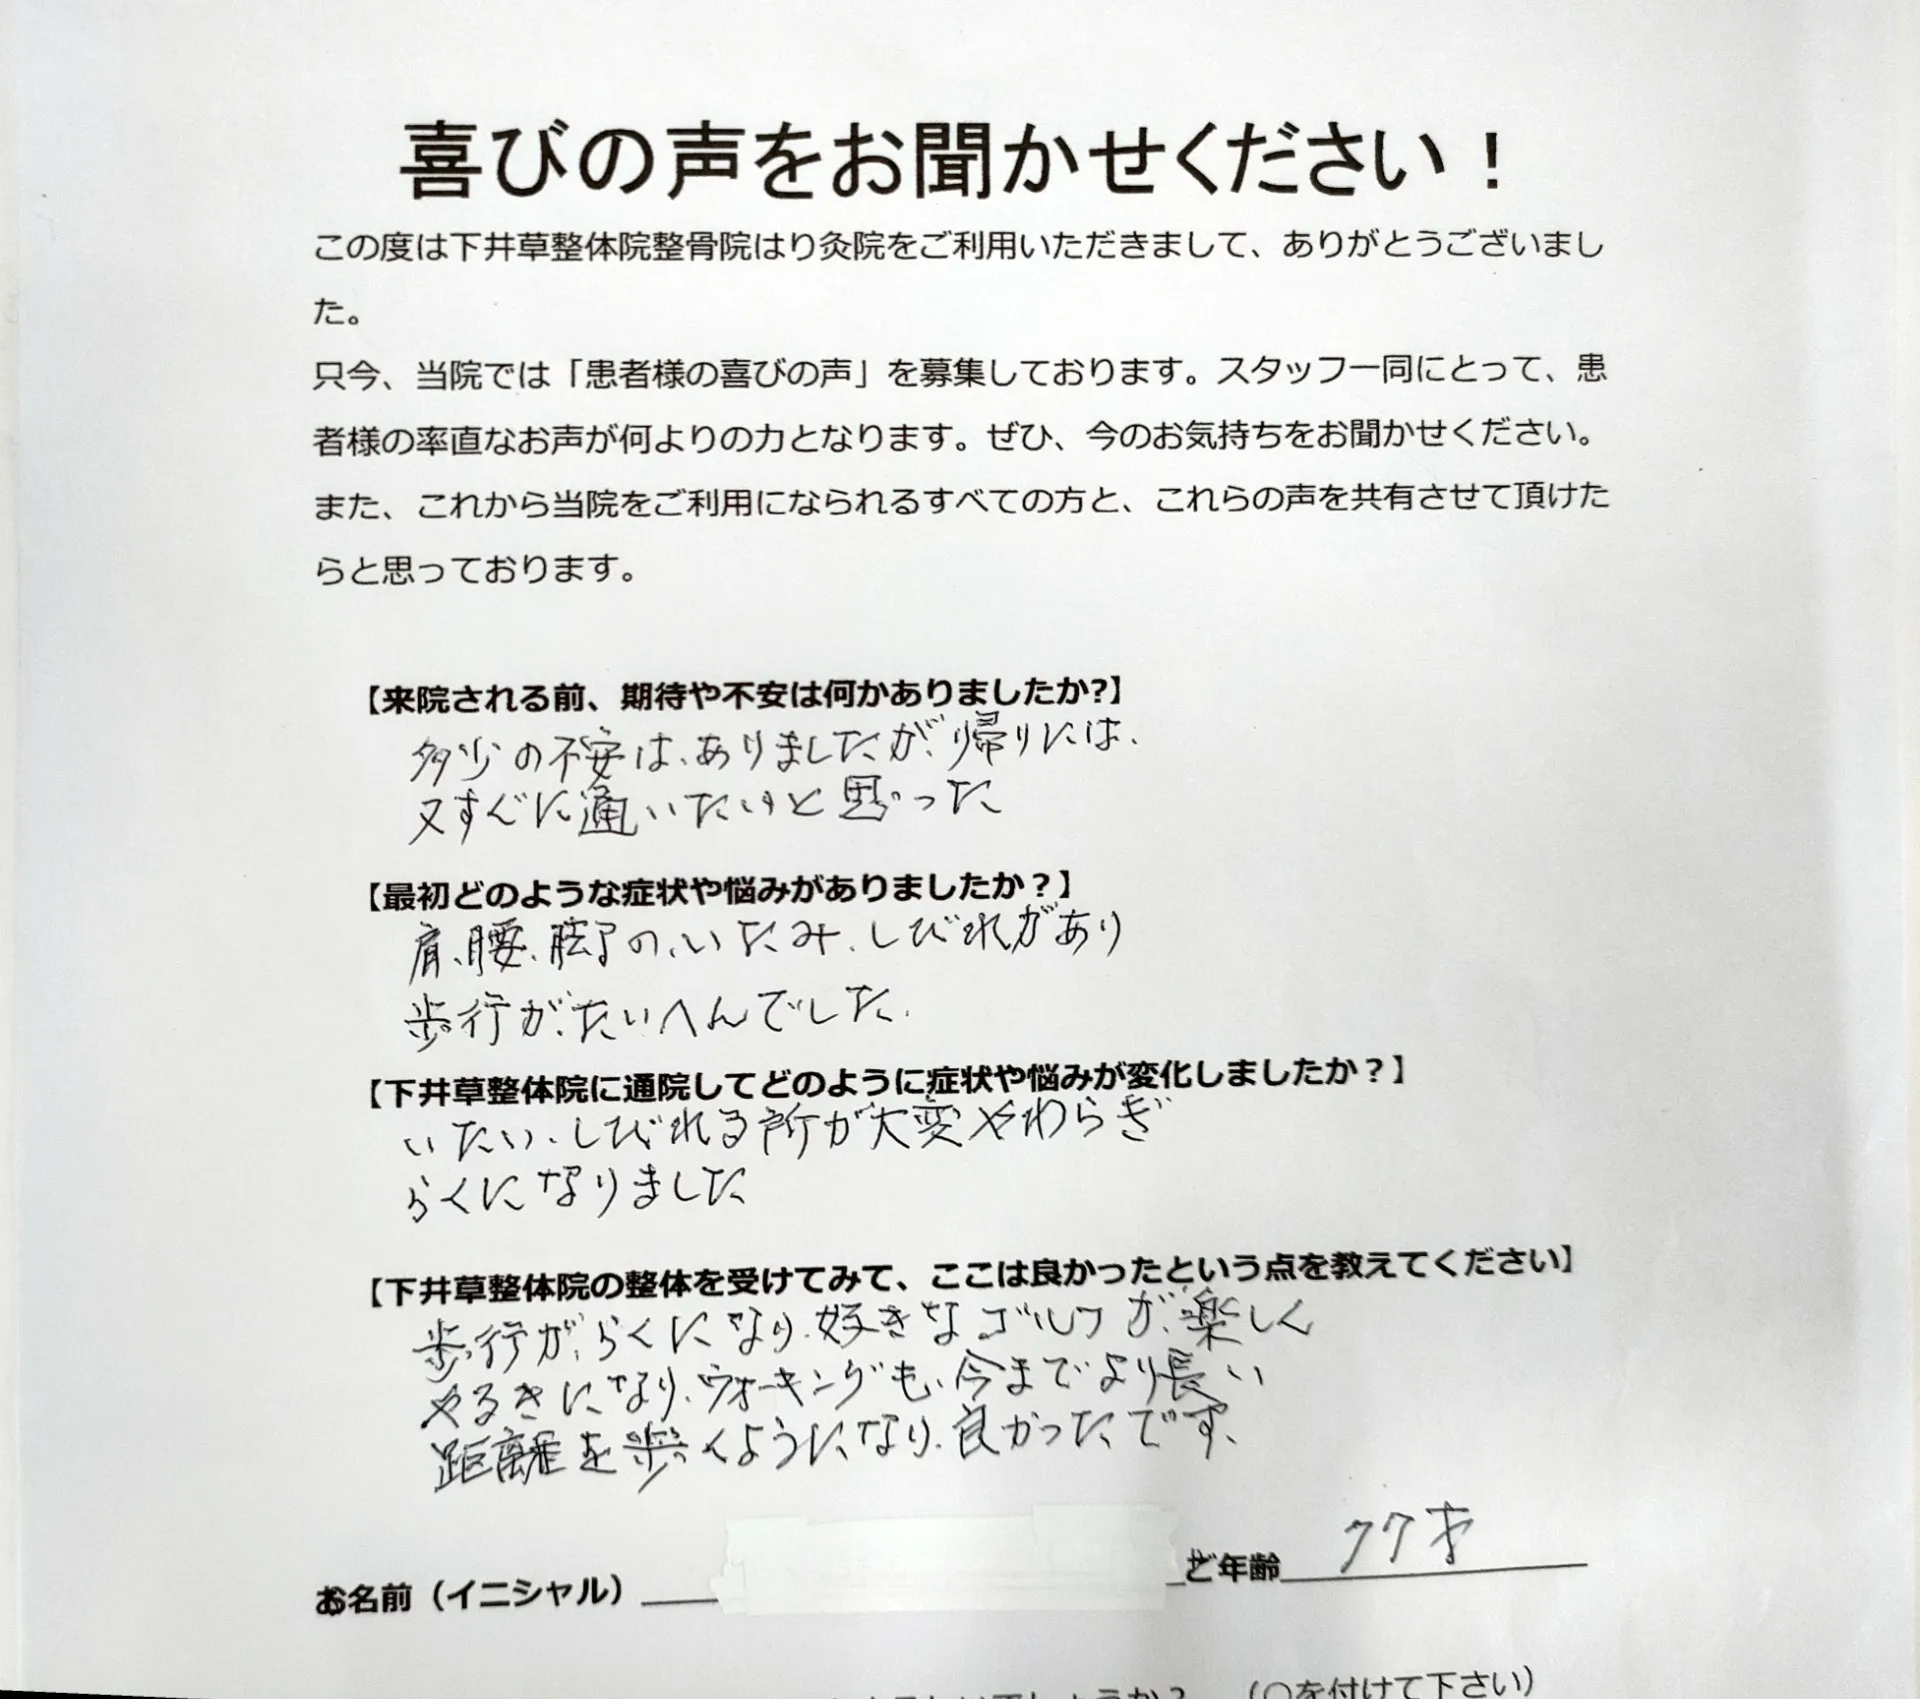 喜びの声をお聞かせください！
この度は下井草整体院整骨院はり灸院をご利用いただきまして、ありがとうございまし
た。
只今、当院では「患者様の喜びの声」を募集しております。スタッフ一同にとって、患
者様の率直なお声が何よりの力となります。ぜひ、今のお気持ちをお聞かせください。
また、これから当院をご利用になられるすべての方と、これらの声を共有させて頂けた
らと思っております。
【来院される前、期待や不安は何かありましたか?】
多少の不安は、ありましたが、帰りには、
又すぐに通いたいと思った
【最初どのような症状や悩みがありましたか？】
肩、腰、脚の、いたみ、しびれがあり
歩行が、たいへんでした、
【下井草整体院に通院してどのように症状や悩みが変化しましたか？】
いたい、しびれる所が大変やわらぎ
らくになりました
【下井草整体院の整体を受けてみて、ここは良かったという点を教えてください】
歩行が、らくになり、好きなゴルフが、楽しく
やるきになり、ウォーキングも、今までより長い
距離を歩くようになり、良かったです、
お名前（イニシャル）
ご年齢 77才
でしょうか？ （○を付けて下さい）